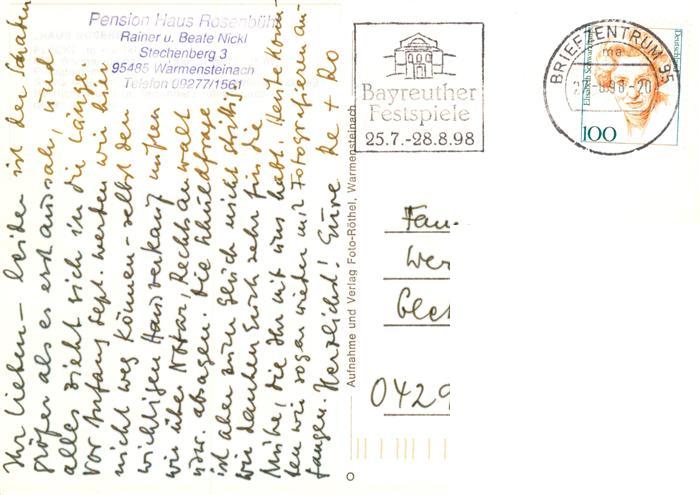 Pension Haus Rosenbühl
Rainer u. Beate Nickl
Stechenberg 3
95485 Warmensteinach
Telefon 09277/1561
Ihr Lieben – leider ist der Schaden
größer als es erst aussah, und
alles zieht sich in die Länge.
Vor Anfang Sept. werden wir hier
nicht weg können – selbst den
wichtigen Hausverkauf mußten
wir über Notar, Rechtsanwalt
usw. absagen. Die Schuldfrage
ist aber zum Glück nicht strittig
wir danken Euch sehr für die
Mühe, die Ihr mit uns habt. Heute konn-
ten wir sogar wieder mit Fotografieren an-
fangen. Herzlichst! Eure Re + Ro
Aufnahme und Verlag Foto-Röthel, Warmensteinach
Bayreuther
Festspiele
25.7.-28.8.98
BRIEFZENTRUM 95
ma
98-20
Deutsche
Elisabeth Schwarzhaupt
100
Fam.
Wer
Glei
0429